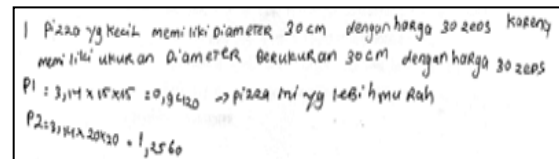 1 Pizza yg kecil memiliki Diameter 30 cm dengan harga 30 zeds karena
memiliki ukuran Diameter Berukuran 30 cm dengan harga 30 zeds
P1 : 3,14 x 15 x 15 = 0,9420 → Pizza ini yg lebih murah
P2 = 3,14 x 20 x 20 = 1,2560